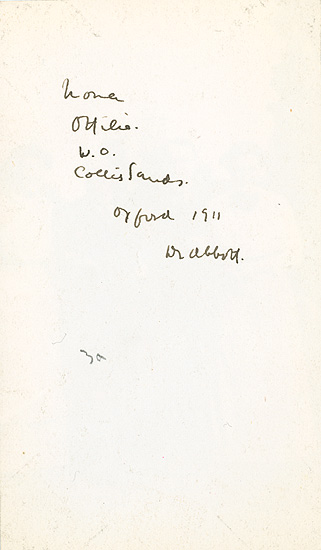 Nona
Ottilie.
W.O.
Collis Sands.
Oxford 1911
Dr Abbott.